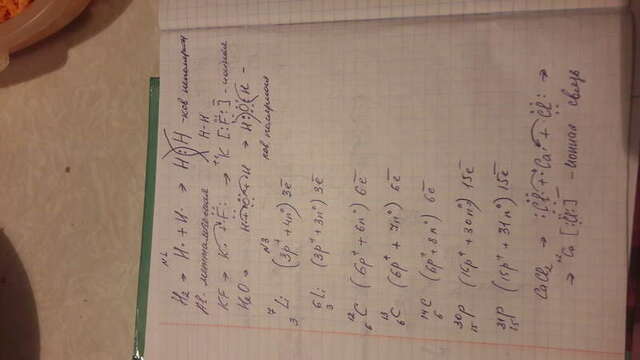 N1
H₂ → H· + H· → H : H - ков неполярн
H-H
Al - металлическая
KF → K· + ·F: → ⁺K [:F:]⁻ - ионная
H₂O → H → O ← H → H : O : H -
ков полярная
N3
⁷₃Li (3p⁺ + 4n⁰) 3e⁻
⁶₃Li (3p⁺ + 3n⁰) 3e⁻
¹²₆C (6p⁺ + 6n⁰) 6e⁻
¹³₆C (6p⁺ + 7n⁰) 6e⁻
¹⁴₆C (6p⁺ + 8n⁰) 6e⁻
³⁰₁₅P (15p⁺ + 30n⁰) 15e⁻
³¹₁₅P (15p⁺ + 31n⁰) 15e⁻
CaCl₂ → :Cl· + ·Ca· + ·Cl: →
→ ⁺²Ca [:Cl:]⁻ - ионная связь